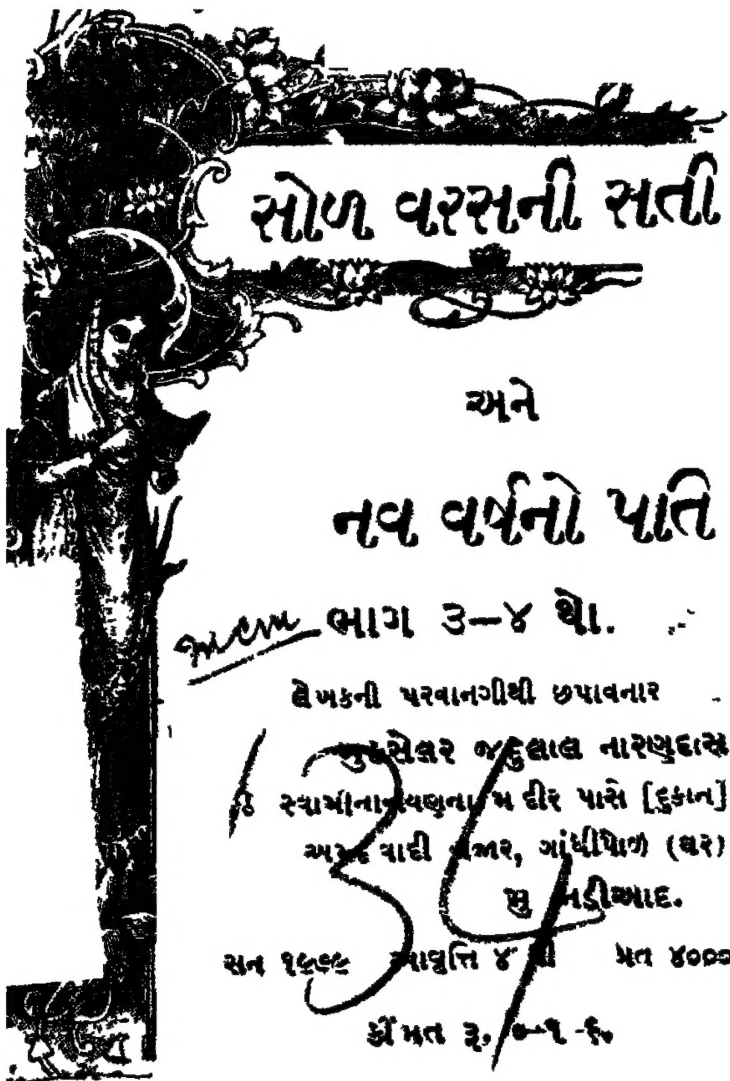 સોળ વરસની સતી
અને
નવ વર્ષનો પતિ
ભાગ ૩–૪ થો.
લેખકની પરવાનગીથી છપાવનાર
બુકસેલર જદુલાલ નારણદાસ
ઠે સ્વામીનારાયણના મંદીર પાસે [દુકાન]
અમદાવાદી બજાર, ગાંધીપોળ (ઘર)
મુ નડીઆદ.
સન ૧૯૧૯ આવૃત્તિ ૪ થી પ્રત ૪૦૦૦
કીંમત રૂ. ૦-૧-૬